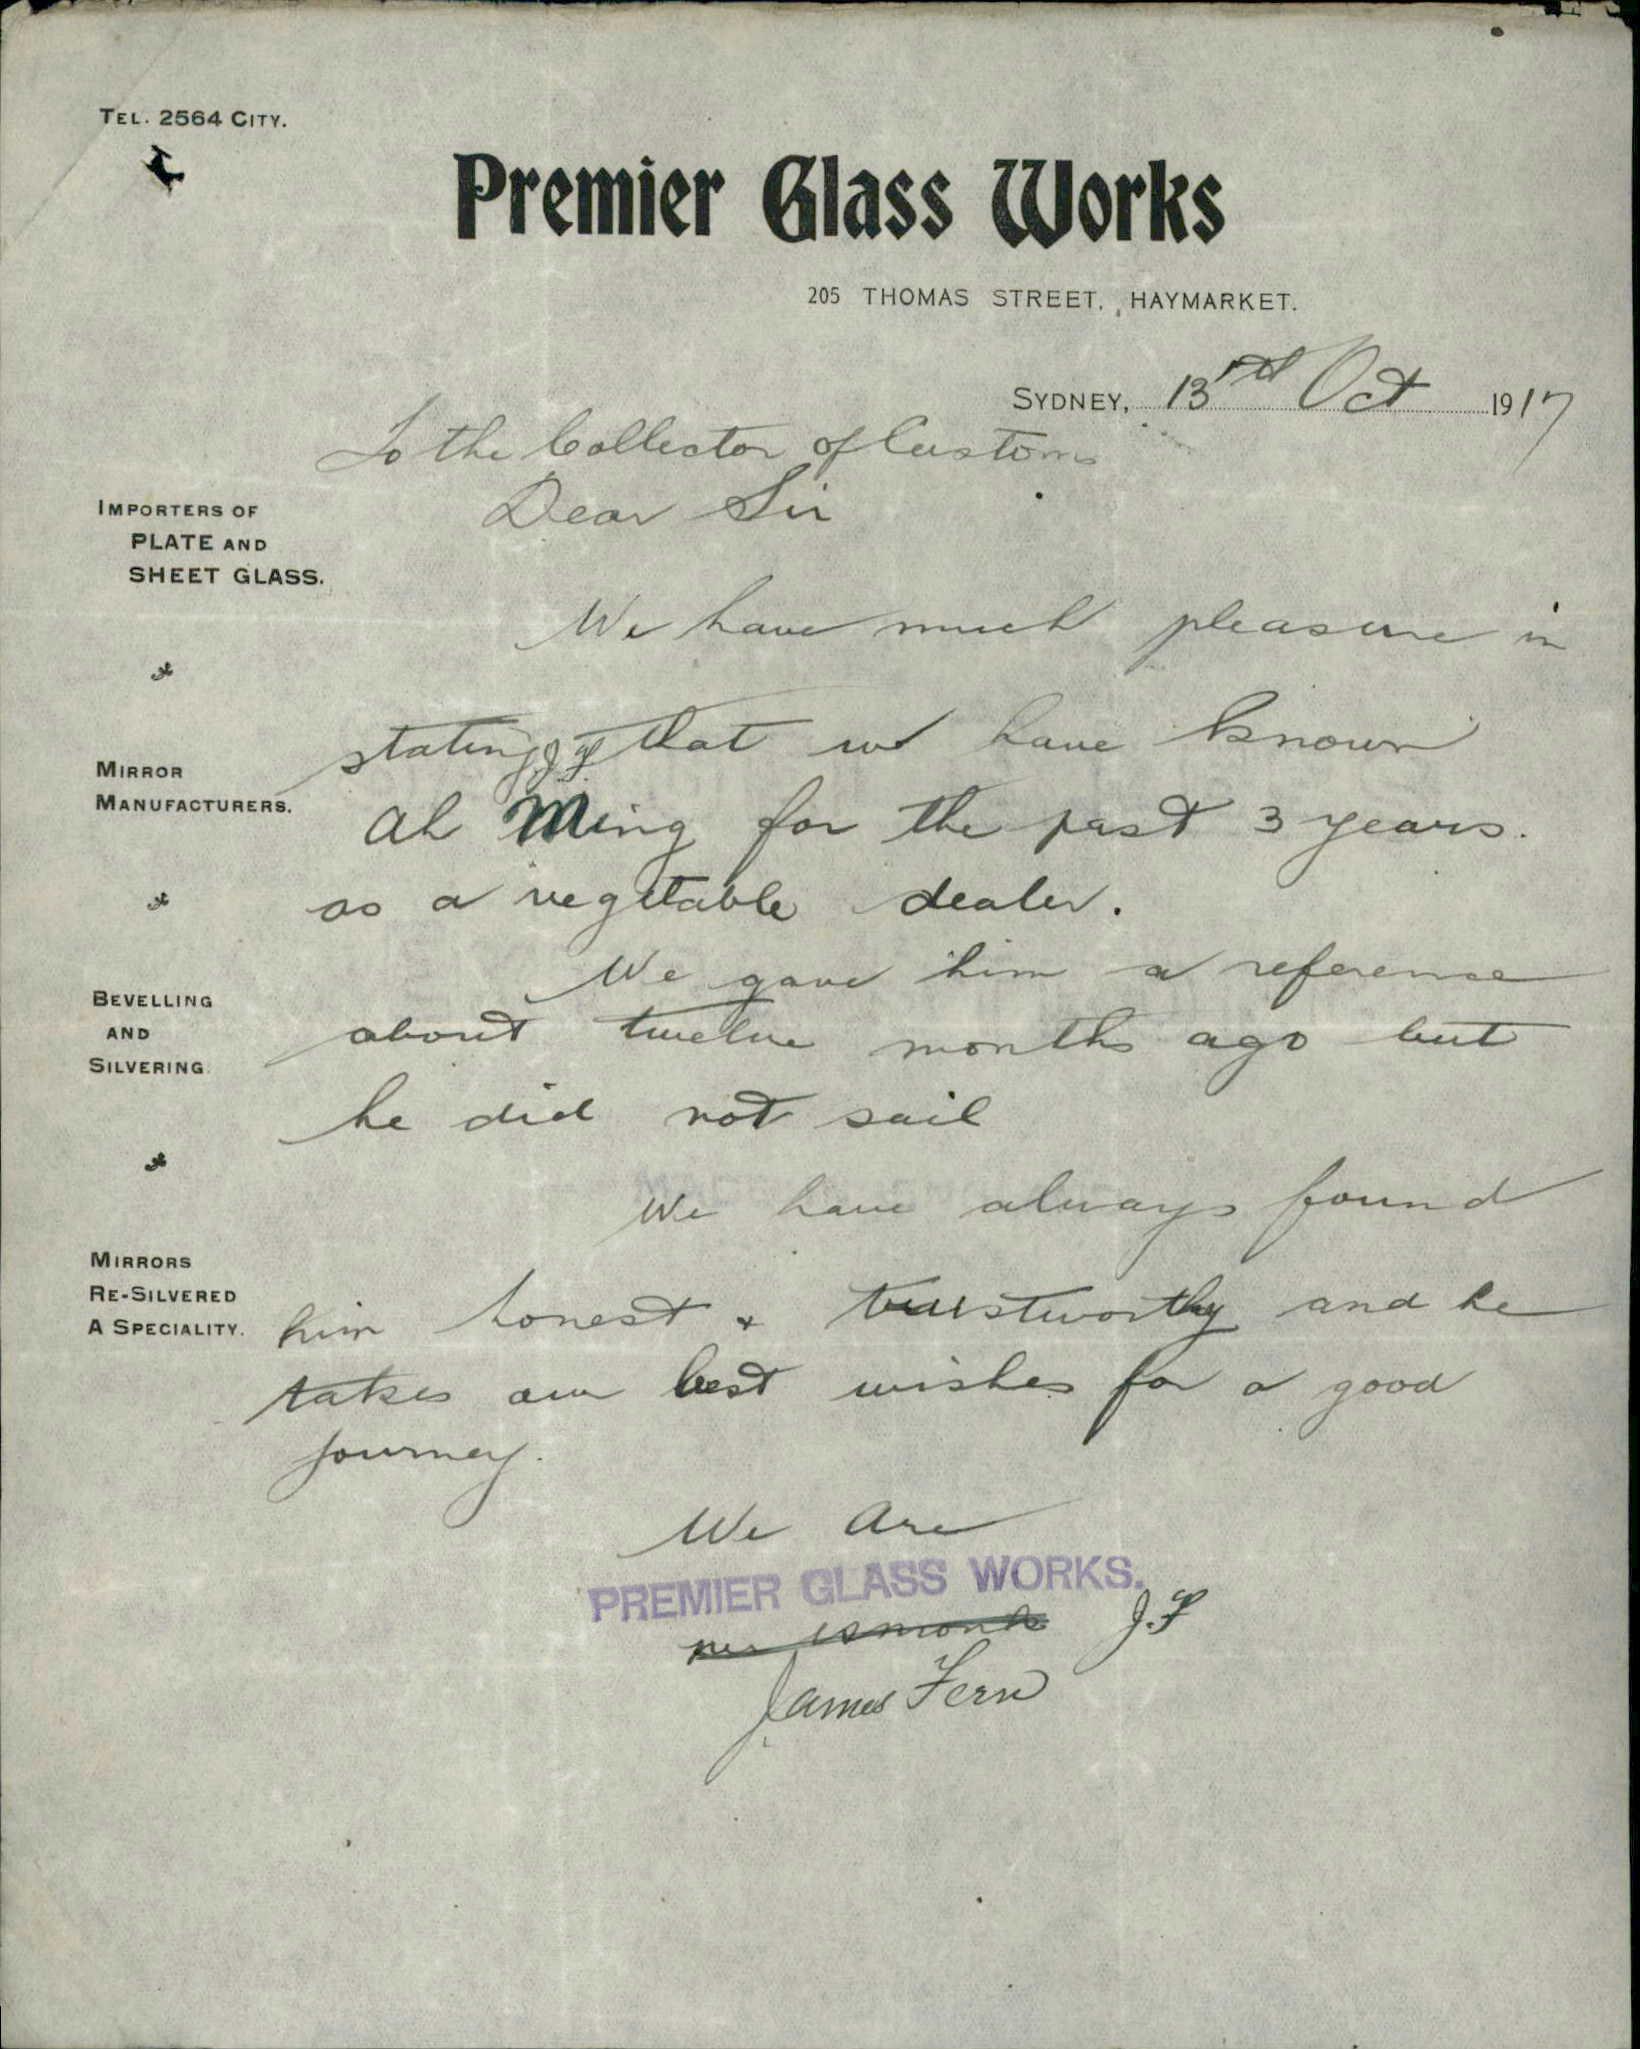 TEL. 2564 CITY.
Premier Glass Works
205 THOMAS STREET, HAYMARKET.
SYDNEY, 13th Oct 1917
To the Collector of Customs
Dear Sir
IMPORTERS OF
PLATE AND
SHEET GLASS.
MIRROR
MANUFACTURERS.
BEVELLING
AND
SILVERING.
MIRRORS
RE-SILVERED
A SPECIALITY.
We have much pleasure in
stating that we have known
J.F
Ah Ming for the past 3 years.
as a vegetable dealer.
We gave him a reference
about twelve months ago but
he did not sail
We have always found
him honest & trustworthy and he
takes our best wishes for a good
journey.
We are
PREMIER GLASS WORKS.
per J.F
James Fern